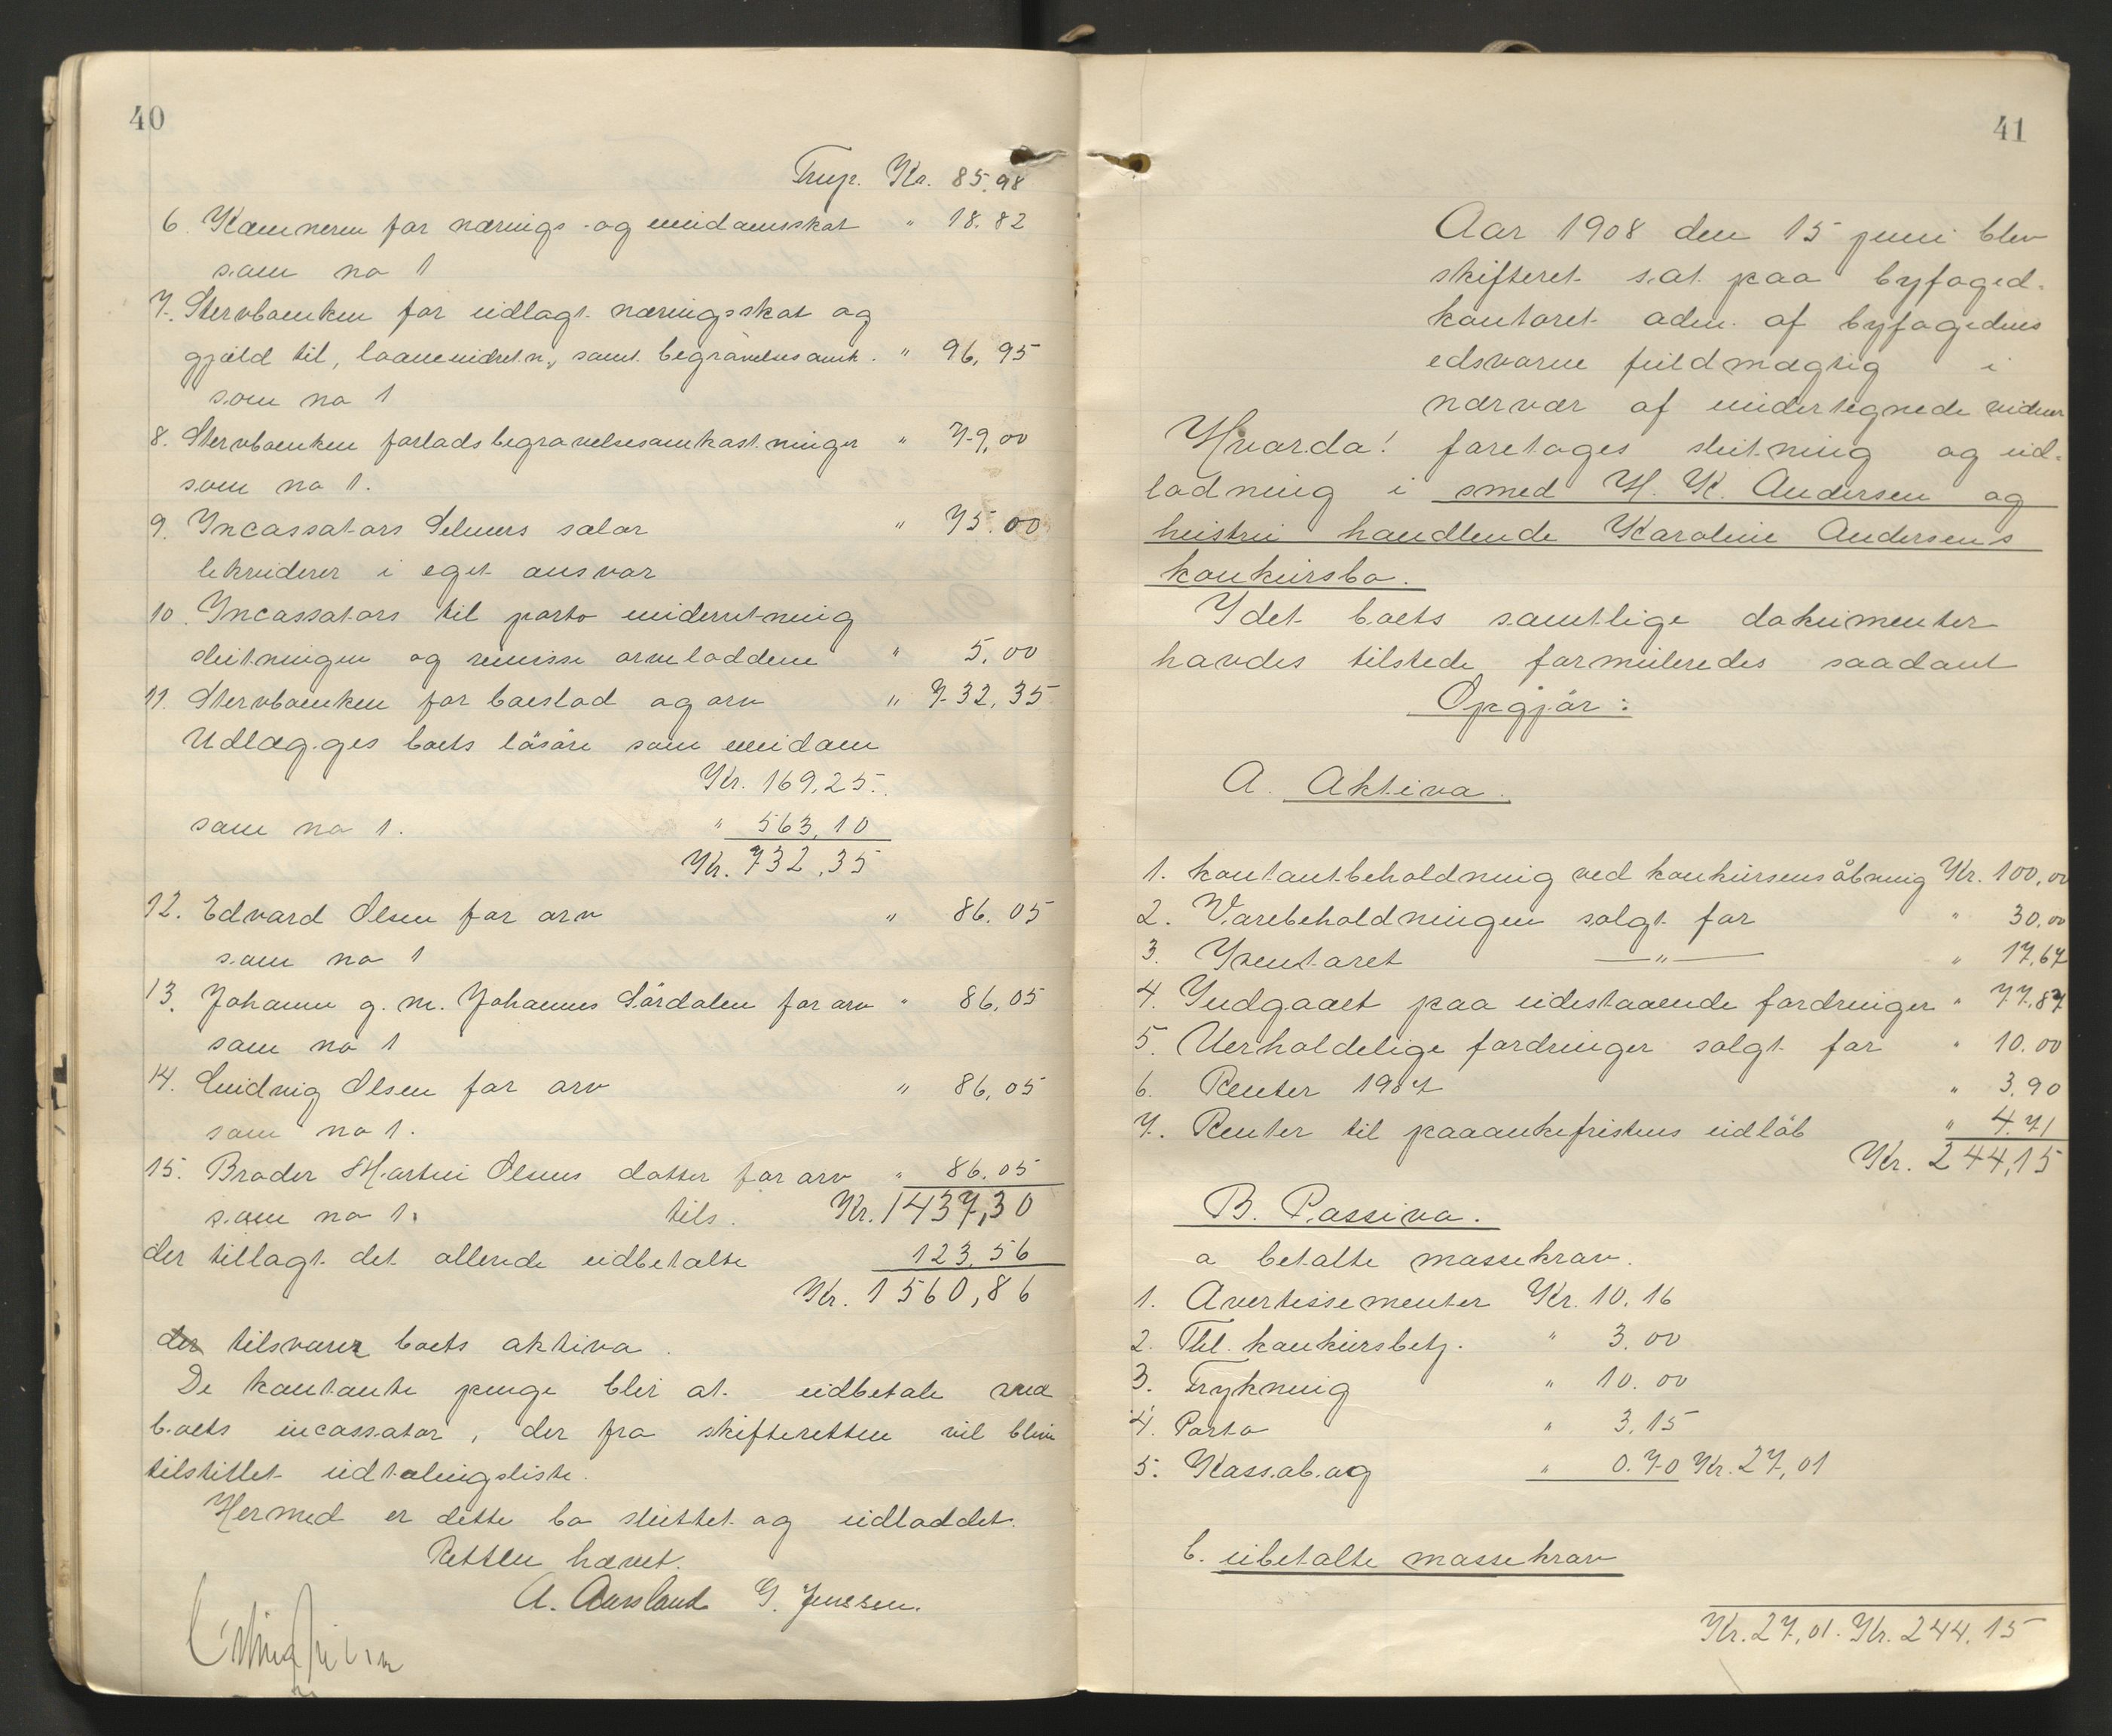 40
Trnsp. Kr. 85.98
6. Kæmneren for nærings- og eiendomsskat " 18.82
som no 1
7. Stervboenken for udlagt næringsskat og
gjæld til, laaneindretn., samt begravelsesomk. " 96,95
som no 1
8. Stervboenken forlods begravelsesomkostninger " 79,00
som no 1.
9. Incassators Selmers salær " 75.00
likviderer i eget ansvar
10. Incassators til porto underretning
slutningen og remisse arvelodderne " 5,00
11. Stervboenken for boeslod og arv " 732,35
Udlægges boets løsøre som eiendom
Kr. 169,25.
som no 1. " 563,10
Kr. 732,35
12. Edvard Olsen for arv " 86.05
som no 1
13. Johanne g. m. Johannes Sördalen for arv " 86,05
som no 1
14. Ludvig Olsen for arv " 86,05
som no 1.
15. Broder Martin Olsens datter for arv " 86.05
som no 1. tils. Kr. 1437,30
der tillagt det allerede udbetalte 123.56
Kr. 1560,86
der tilsvarer boets aktiva.
De kontante penge blir at udbetale ved
boets incassator, der fra skifteretten vil blive
tilstillet udtalingsliste.
Hermed er dette bo sluttet og udloddet.
Retten hævet.
A. Aursland G. Jenssen.
41
Aar 1908 den 15 juni blev
skifteret sat paa byfoged-
kontoret adm. af byfogedens
edsvorne fuldmægtig i
nærvær af undertegnede vidner
Hvorda! foretoges slutning og ud-
lodning i smed H. K. Andersen og
hustru handlende Karoline Andersens
konkursbo.
Idet boets samtlige dokumenter
havdes tilstede formuleredes saadant
Opgjør:
A. Aktiva.
1. kontantbeholdning ved konkursens åbning Kr. 100,00
2. Varebeholdningen solgt for " 30,00
3. Inventaret —"— " 17,67
4. Indgaaet paa udestaaende fordringer " 77,87
5. Uerholdelige fordringer solgt for " 10.00
6. Renter 1907 " 3,90
7. Renter til paaankefristens udløb " 4.71
Kr. 244,15
B. Passiva.
a betalte massekrav.
1. Avertissementer Kr. 10.16
2. Tbl. konkursbetj. " 3.00
3. Trykning " 10.00
4. Porto " 3,15
5. Kassabog " 0.70 Kr. 27,01
b. ubetalte massekrav
Kr. 27,01. Kr. 244.15